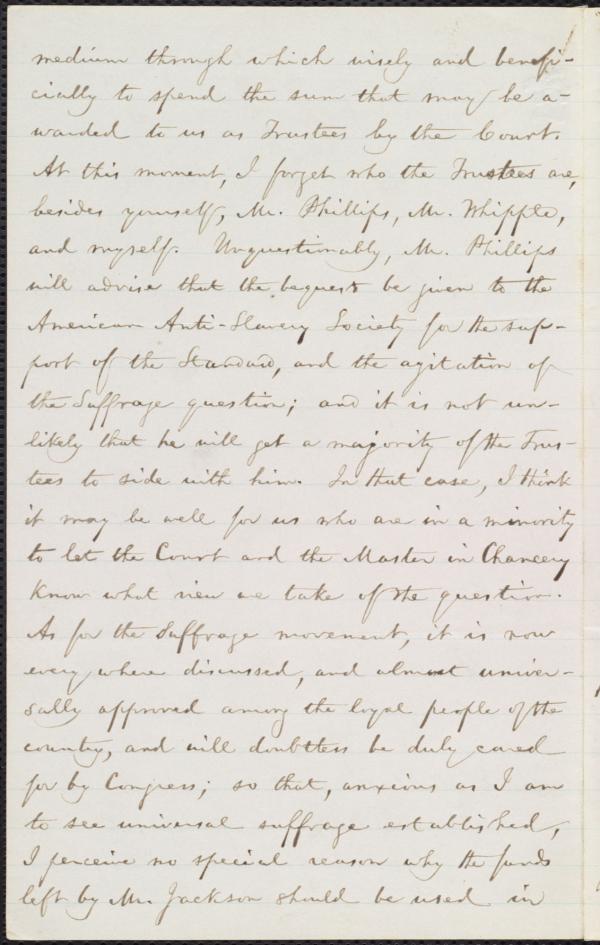 medium through which wisely and benefi-
cially to spend the sum that may be a-
warded to us as Trustees by the Court.
At this moment, I forget who the Trustees are,
besides yourself, Mr. Phillips, Mr. Whipple,
and myself. Unquestionably, Mr. Phillips
will advise that the bequest be given to the
American Anti-Slavery Society for the sup-
port of the Standard, and the agitation of
the Suffrage question; and it is not un-
likely that he will get a majority of the Trus-
tees to side with him. In that case, I think
it may be well for us who are in a minority
to let the Court and the Master in Chancery
know what view we take of the question.
As for the Suffrage movement, it is now
every where discussed, and almost univer-
sally approved among the loyal people of the
country, and will doubtless be duly cared
for by Congress; so that, anxious as I am
to see universal suffrage established,
I perceive no special reason why the funds
left by Mr. Jackson should be used in